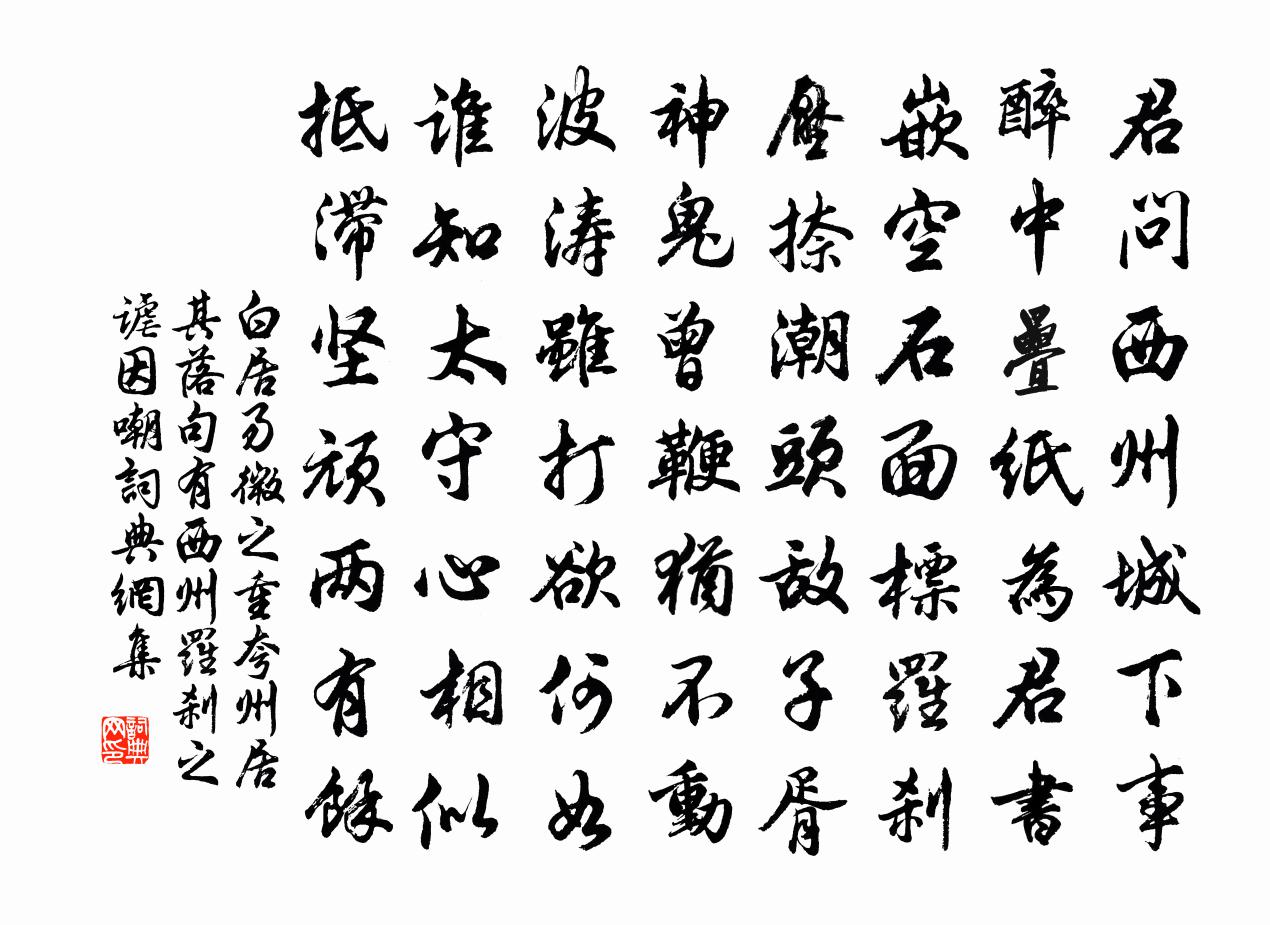 君问西州城下事
醉中疊紙為君書
嵌空石面標羅刹
壓捺潮頭敌子胥
神鬼曾鞭猶不動
波涛雖打欲何如
誰知太守心相似
抵滯坚頑两有餘
白居易微之重夸州居
其落句有西州羅刹之
謔因嘲詞典網集
詞典网印